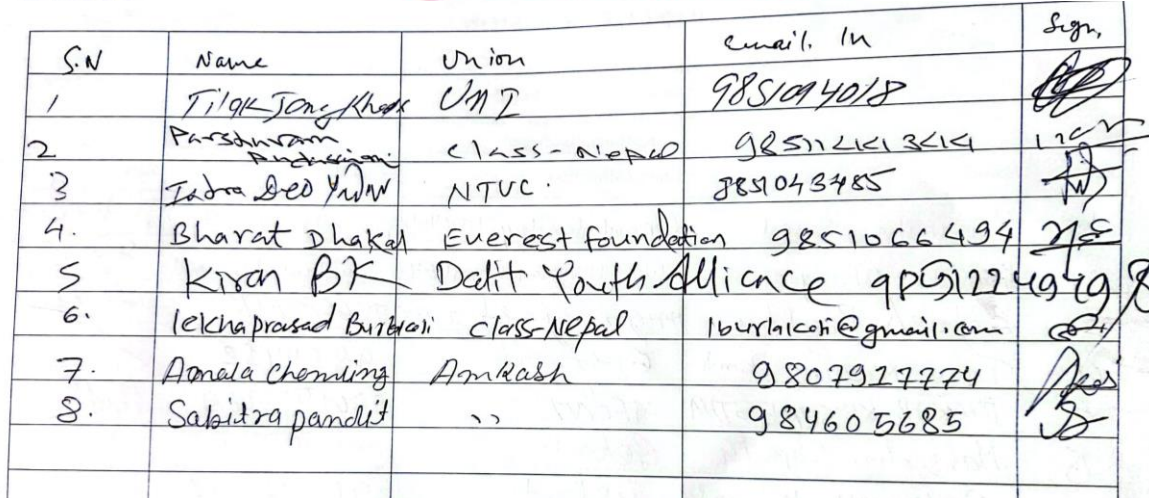 S.N Name Union email. In Sign,
1 Tilak Jang Khadk UNI 9851094018
2 Parshuram Class-Nepal
3 Indra Deo Yadav NTUC. 9851043485
4. Bharat Dhakal Everest foundation 9851066494
5 Kiran BK Dalit Youth Alliance
6. lekhaprasad Burlakoti class-Nepal lburlakoti@gmail.com
7. Amala Chemling Amkash 9807927774
8. Sabitra pandit ,, 984605685